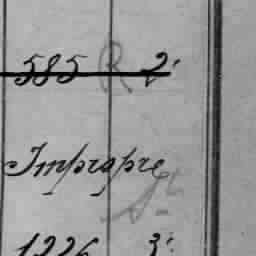 585 R 2.
Impropre
1226 3.